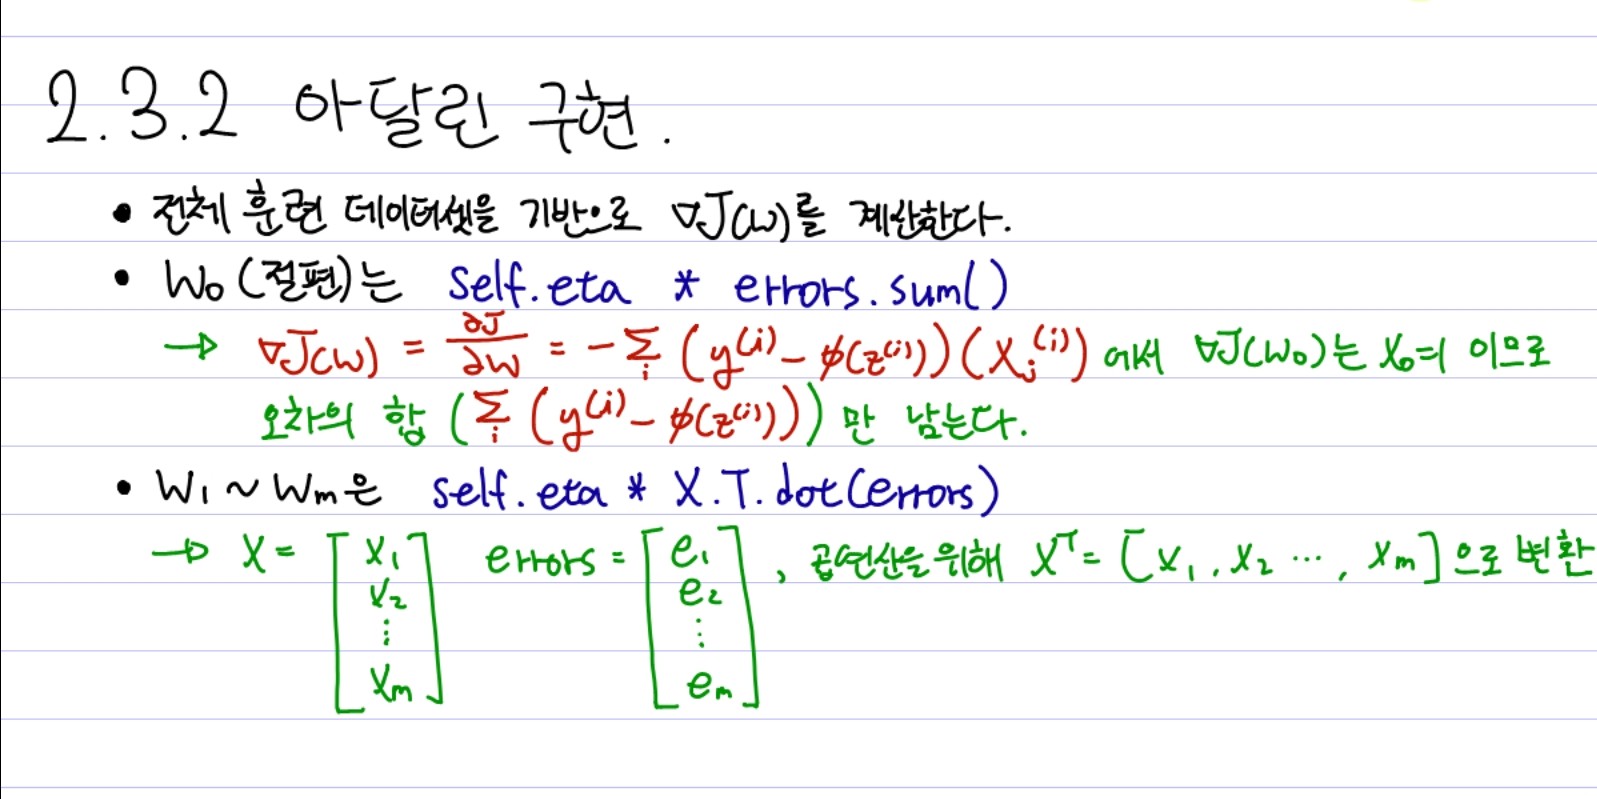 2.3.2 아달린 구현.
• 전체 훈련 데이터셋을 기반으로 ∇J(w)를 계산한다.
• W₀(절편)는 self.eta * errors.sum()
→ ∇J(w) = ∂J/∂w = -Σᵢ (y⁽ⁱ⁾ - φ(z⁽ⁱ⁾))(xⱼ⁽ⁱ⁾) 에서 ∇J(w₀)는 x₀=1 이므로
오차의 합 (Σᵢ (y⁽ⁱ⁾ - φ(z⁽ⁱ⁾)))만 남는다.
• W₁ ~ Wₘ은 self.eta * X.T.dot(errors)
→ X = [x₁ x₂ ⋮ xₘ] errors = [e₁ e₂ ⋮ eₘ], 곱연산을 위해 Xᵀ = [x₁, x₂ ⋯, xₘ]으로 변환